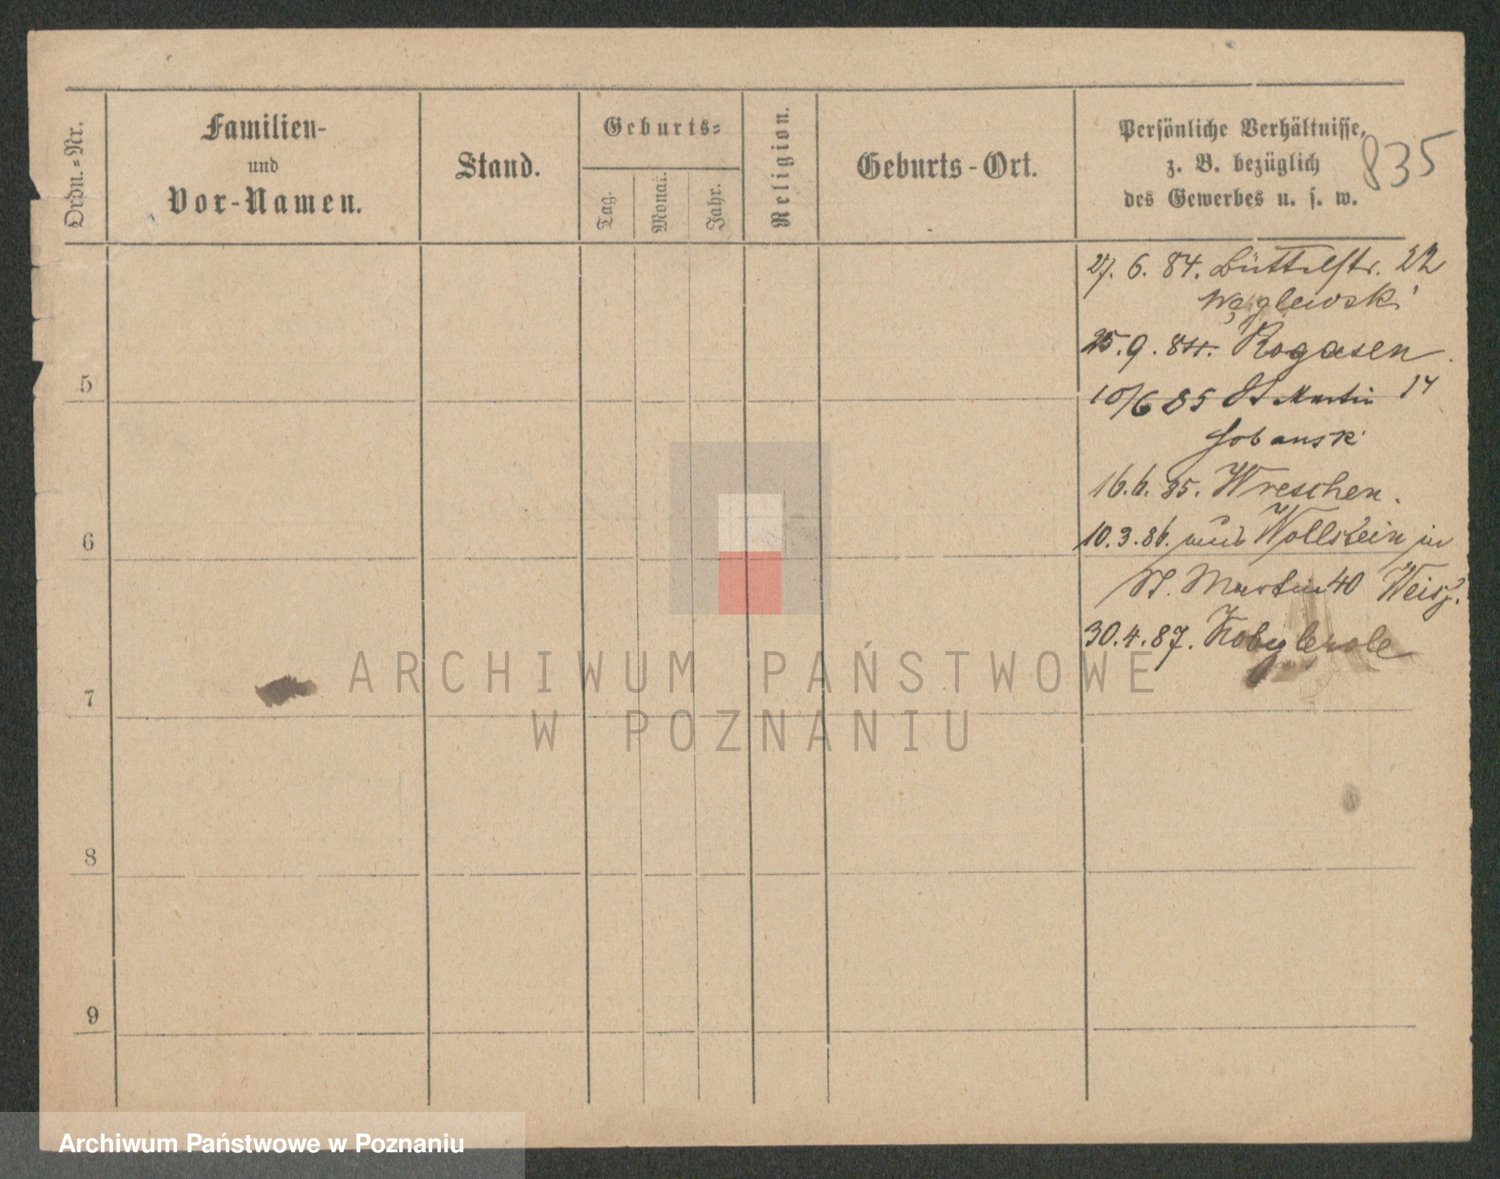 Ordn.=Nr.
Familien-
und
Vor-Namen.
Stand.
Geburts=
Tag.
Monat.
Jahr.
Religion.
Geburts-Ort.
Persönliche Verhältnisse,
z. B. bezüglich
des Gewerbes u. s. w.
835
27. 6. 84. Büttelstr. 22
Węglewski
25. 9. 84. Rogasen.
5
10/6 85 St Martin 17
16. 6. 85. Wreschen.
6
10. 3. 86. aus Wollstein in
St. Martin 40
30. 4. 87.
7
8
9
ARCHIWUM PAŃSTWOWE
W POZNANIU
Archiwum Państwowe w Poznaniu